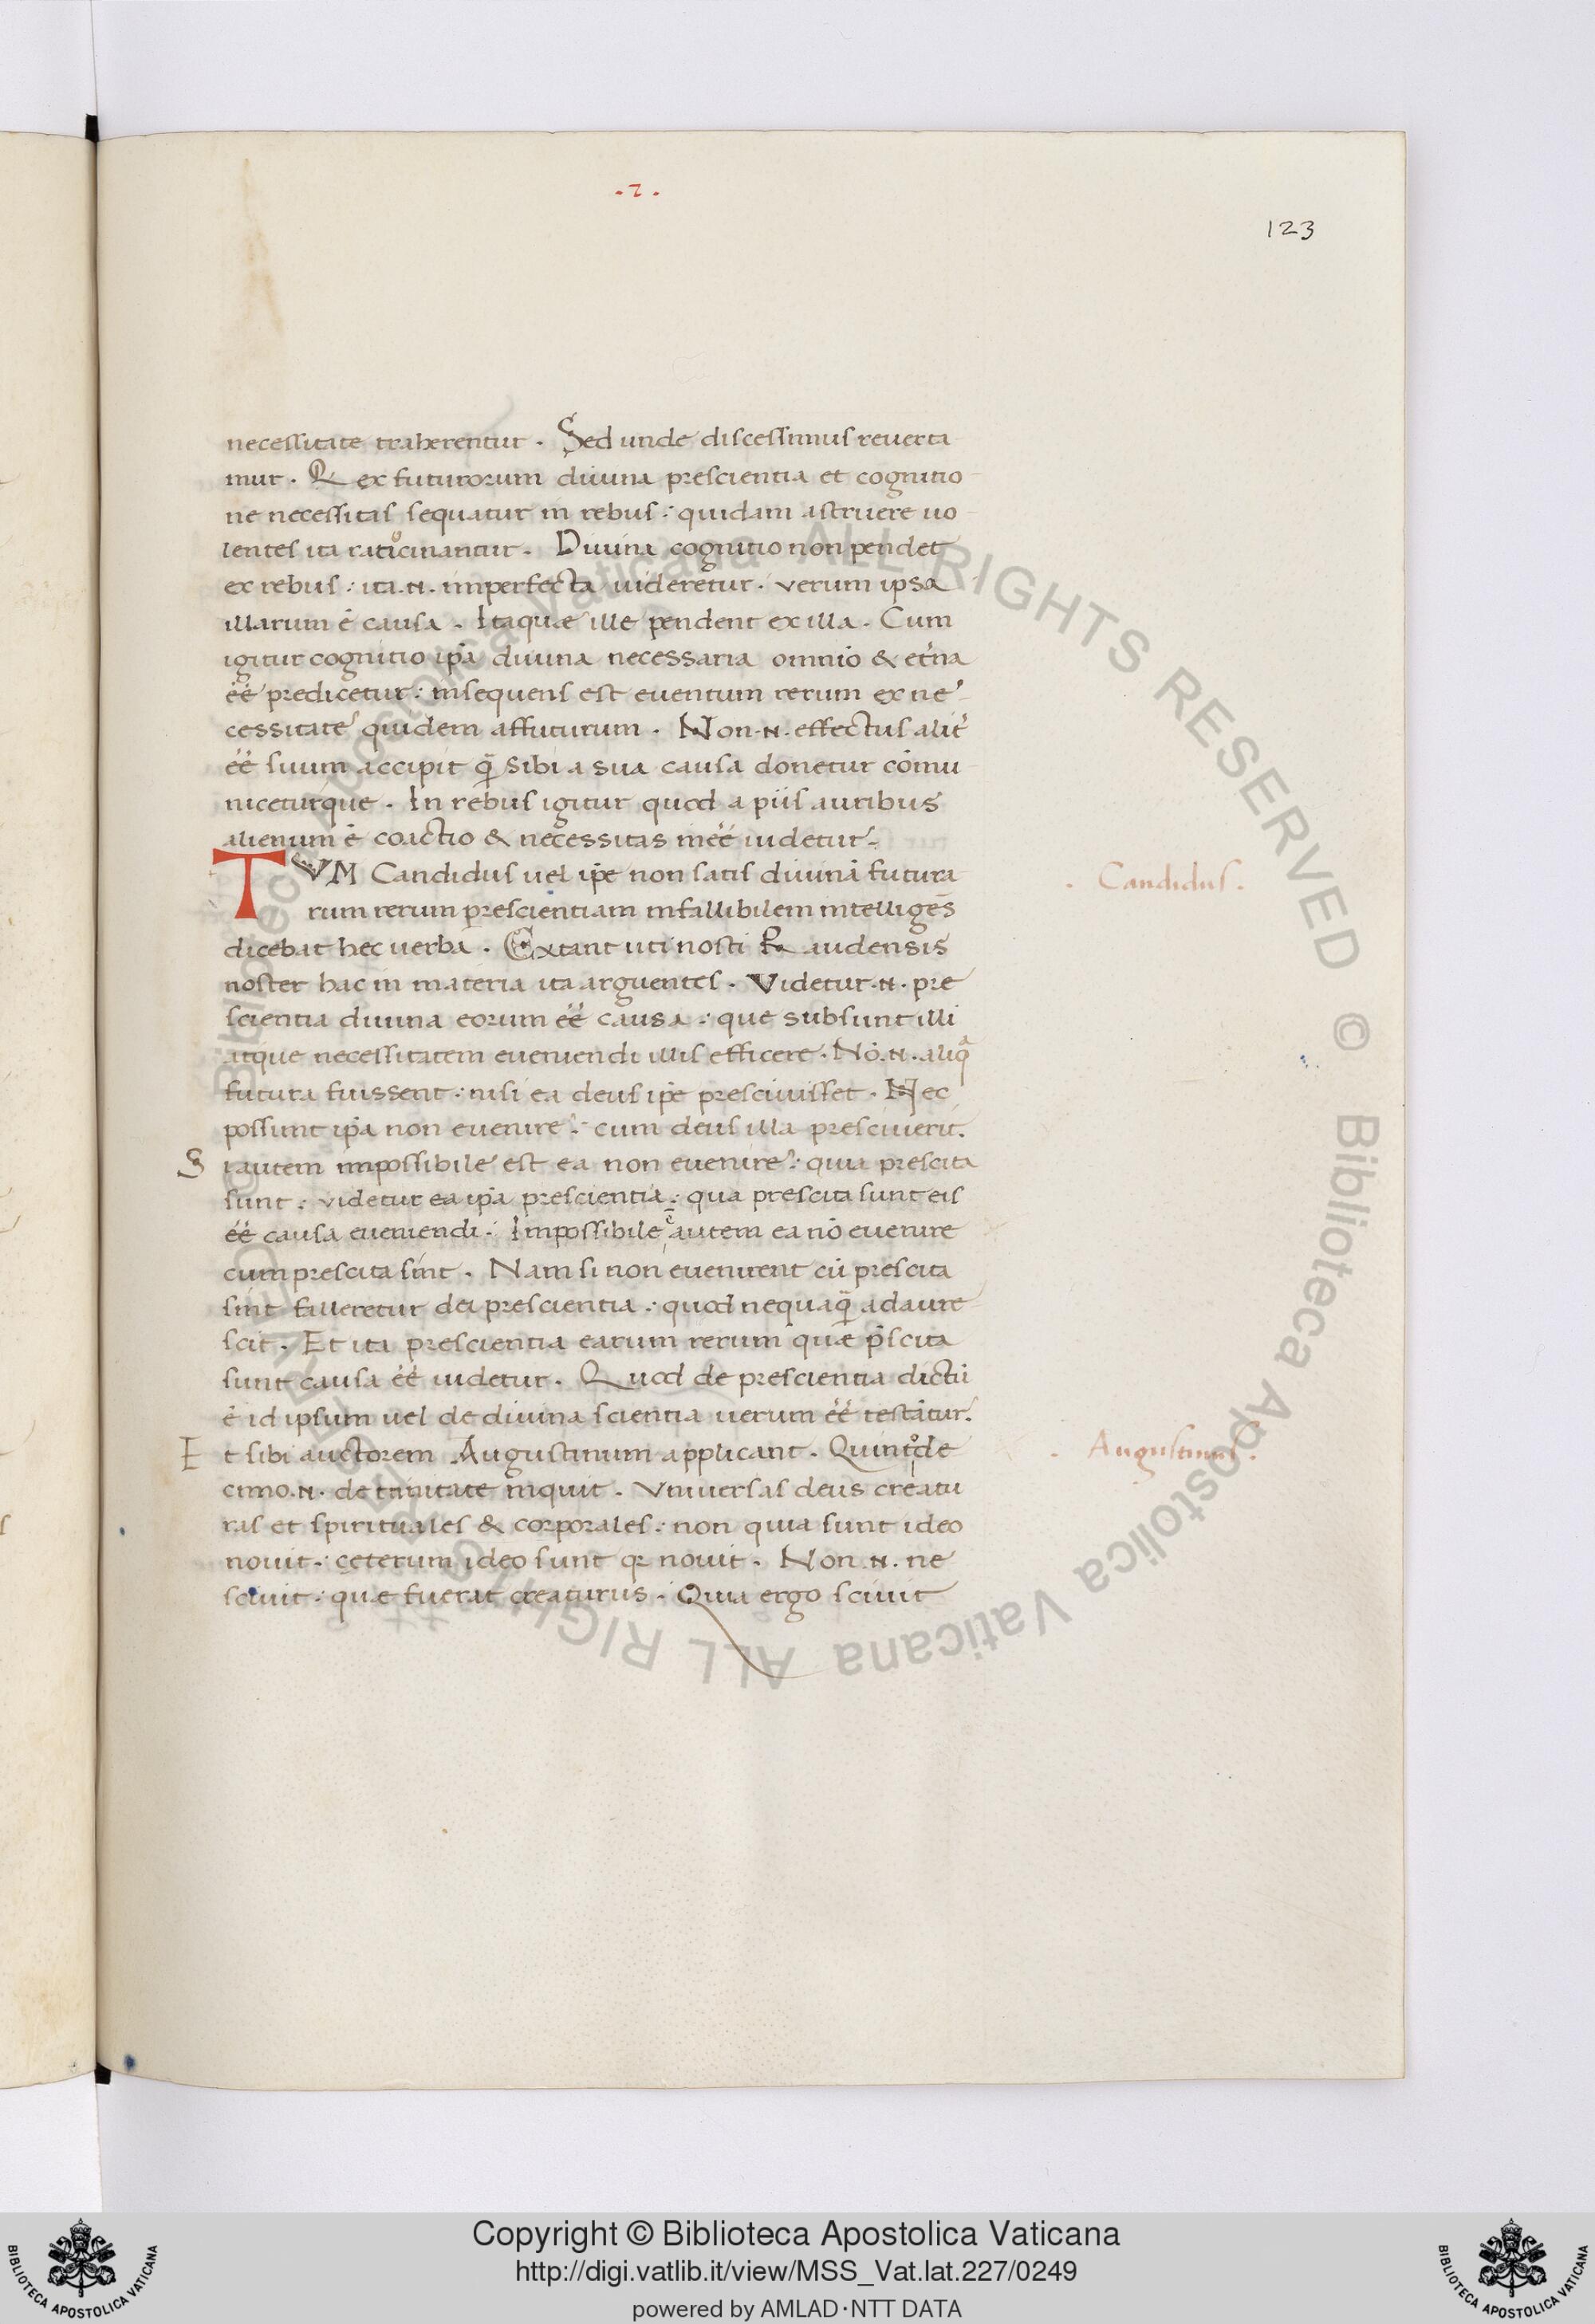 .2.
123
necessitate traherentur. Sed unde discessimus reuerta
mur. Q ex futurorum diuina prescientia et cognitio
ne necessitas sequatur in rebus: quidam astruere uo
lentes ita ratiocinantur. Diuina cognitio non pendet
ex rebus: ita .n. imperfecta uideretur. verum ipsa
illarum ē causa. Itaquae ille pendent ex illa. Cum
igitur cognitio ip̄a diuina necessaria omnīo & et̄na
eē predicetur: insequens est euentum rerum ex ne
cessitate quidem affuturum. Non .n. effectus alit̄
eē suum accipit q̄ sibi a sua causa donetur cōmu
niceturque. In rebus igitur quod a piis auribus
alienum ē coactio & necessitas ineē uidetur.
TVM Candidus uel ip̄e non satis diuinā futura
rum rerum prescientiam infallibilem intelligēs
dicebat hec uerba. Extant uti nosti Raudensis
noster hac in materia ita arguentes. Videtur .n. pre
scientia diuina eorum eē causa: que subsunt illi
atque necessitatem eueniendi illis efficere. Nō .n. aliqᵃ
futura fuissent: nisi ea deus ip̄e presciuisset. Nec
possunt ip̄a non euenire: cum deus illa presciuerit.
Si autem impossibile est ea non euenire: quia prescita
sunt: videtur ea ip̄a prescientia: qua prescita sunt eis
eē causa eueniendi. Impossibile ē autem ea nō euenire
cum prescita sint. Nam si non euenirent cū prescita
sint falleretur dei prescientia: quod nequaq̄ adaure
scit. Et ita prescientia earum rerum quae p̄scita
sunt causa eē uidetur. Quod de prescientia dictū
ē id ipsum uel de diuina scientia uerum eē testātur.
Et sibi auctorem Augustinum applicant. Quintode
cimo .n. de trinitate inquit. Vniuersas deus creatu
ras et spirituales & corporales: non quia sunt ideo
nouit: ceterum ideo sunt qꝛ nouit. Non .n. ne
sciuit: quae fuerat creaturus. Quia ergo sciuit
. Candidus.
. Augustinus.
© Biblioteca Apostolica Vaticana ALL RIGHTS RESERVED
Copyright © Biblioteca Apostolica Vaticana
http://digi.vatlib.it/view/MSS_Vat.lat.227/0249
powered by AMLAD·NTT DATA
BIBLIOTECA APOSTOLICA VATICANA
BIBLIOTECA APOSTOLICA VATICANA